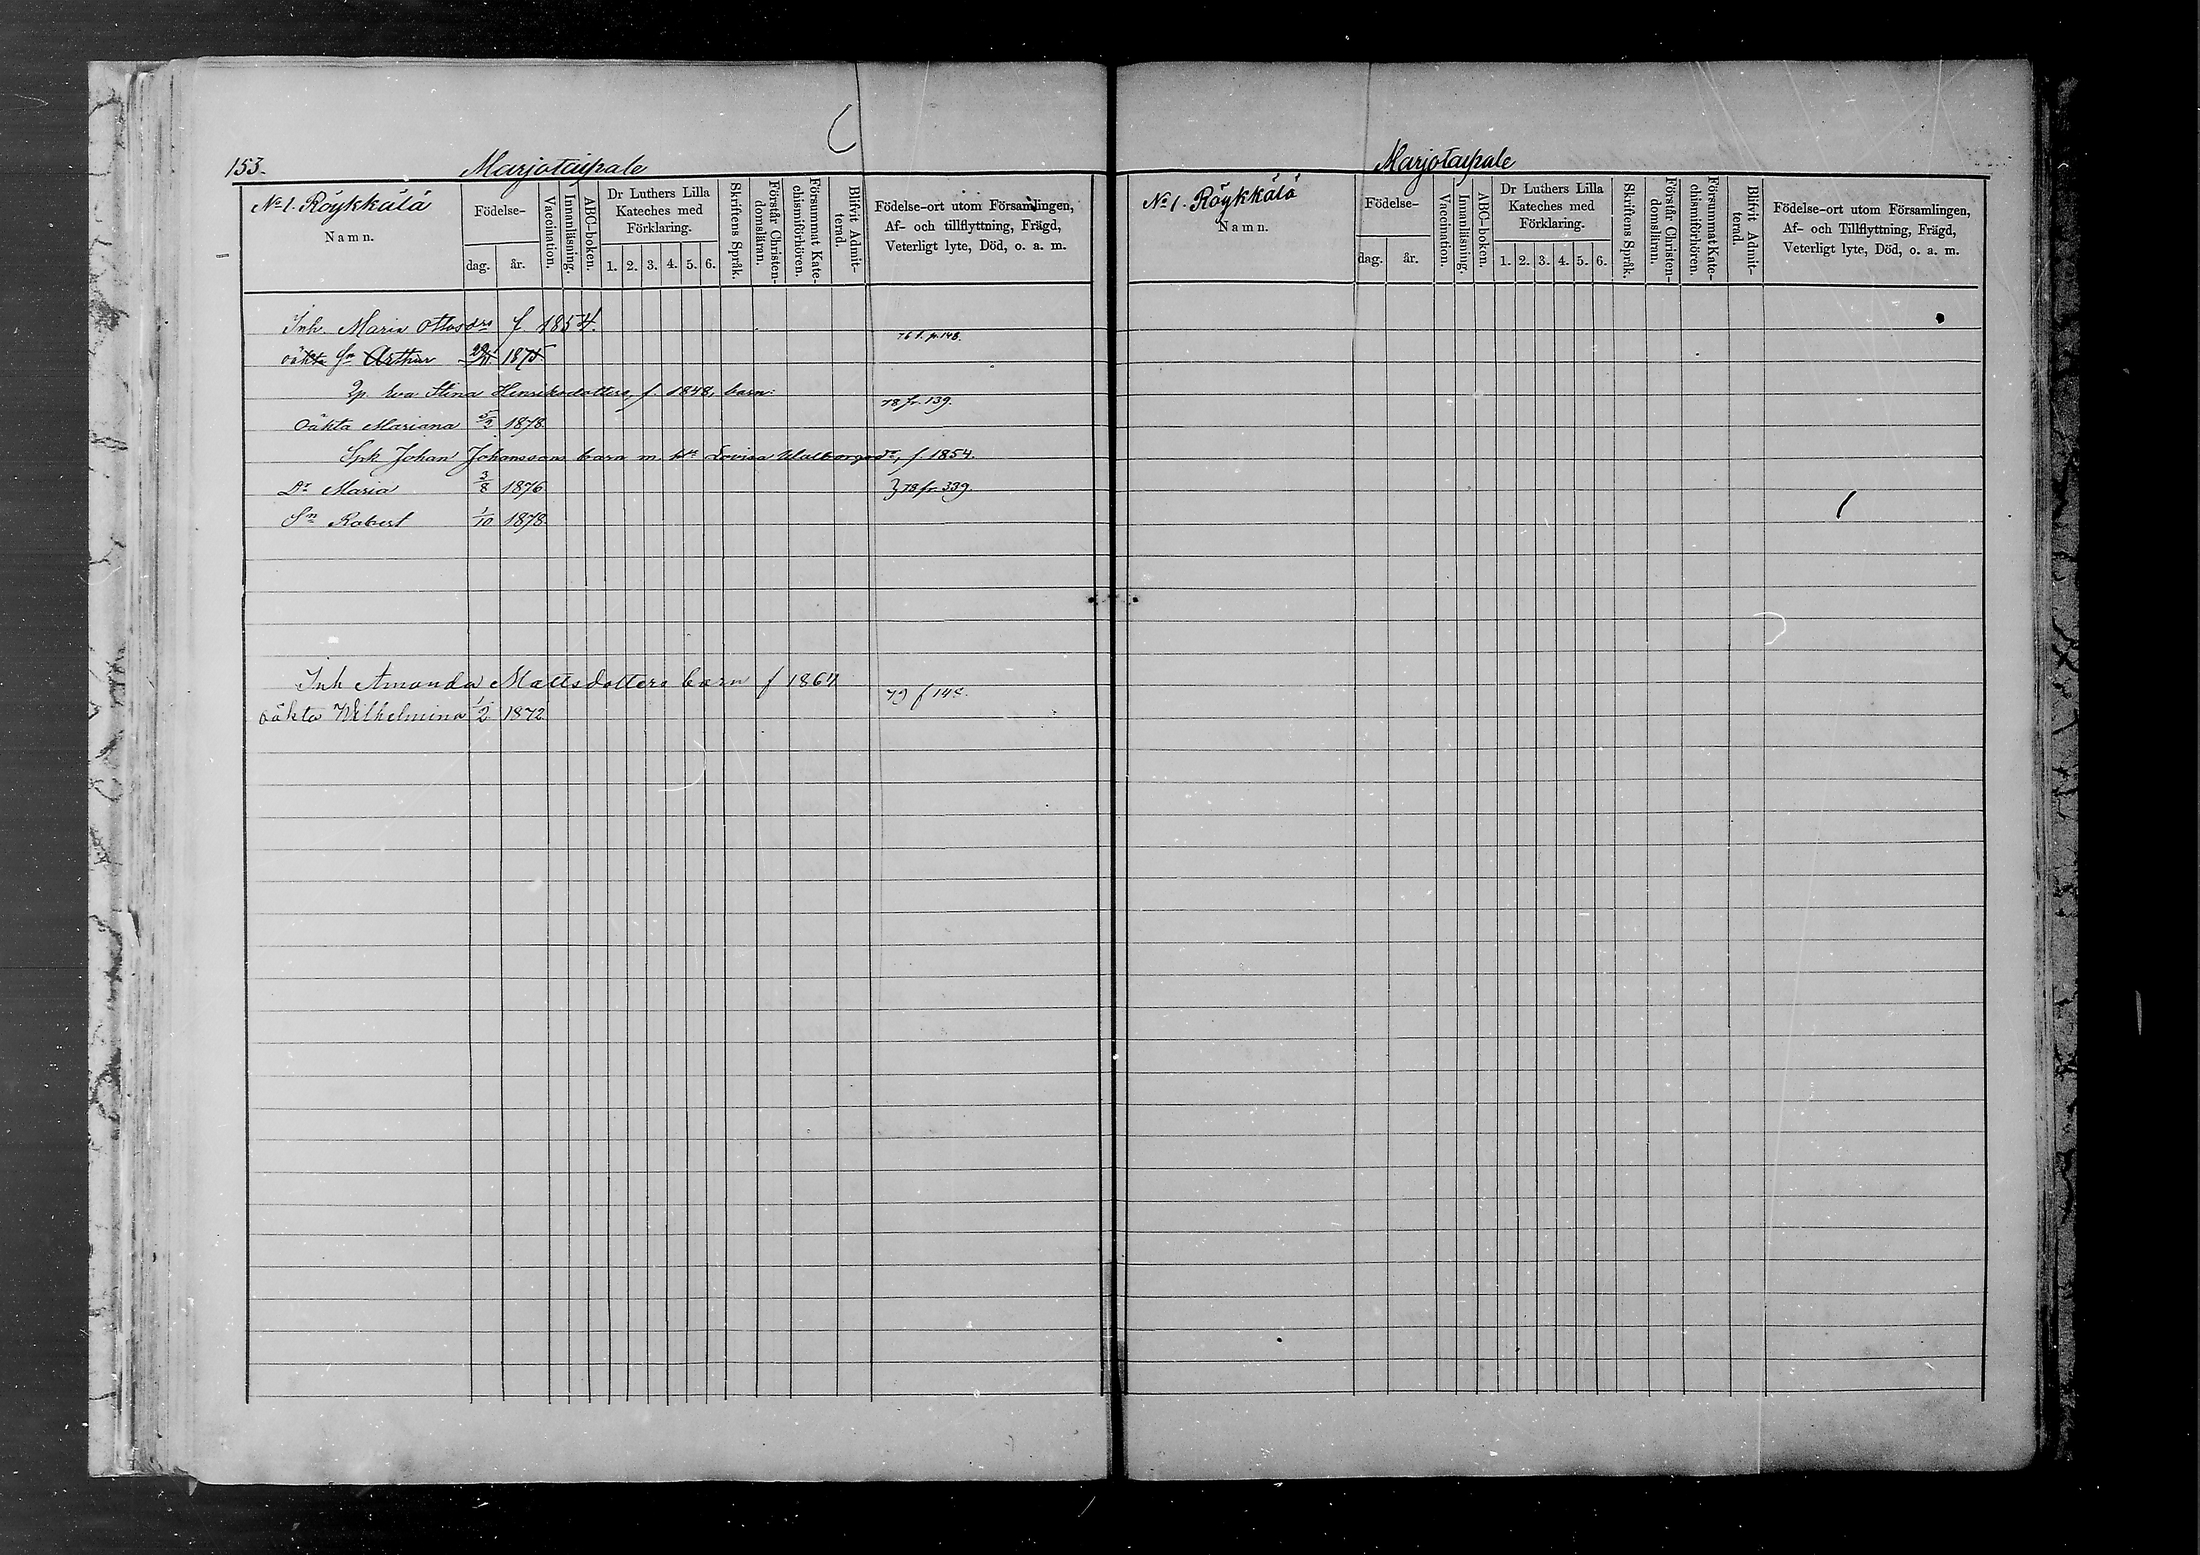 153.
Marjotaipale
No 1. Röykkälä
Namn.
Födelse-
dag.
år.
Vaccination.
Innanläsning.
ABC-boken.
Dr Luthers Lilla
Kateches med
Förklaring.
1. 2. 3. 4. 5. 6.
Skriftens Språk.
Förstår Christen-
domsläran.
Försummat Kate-
chismiförhören.
Blifvit Admit-
terad.
Födelse-ort utom Församlingen,
Af- och tillflyttning, Frägd,
Veterligt lyte, Död, o. a. m.
Inh. Maria Ottosdrs f. 1854.
76 f. p. 148.
oäkta Sn Arthur 1875
Eva Stina Henriksdotters, f. 1848, barn:
78 fr. 139.
Oäkta Mariana 5/2 1878
Johan Johanssons barn m. Lovisa Walborgsdr, f 1854.
Dr Maria 3/8 1876
} 78 fr. 339.
Sn Robert 1/10 1878
Inh Amanda Mattsdotters barn f 1864
79 f 148.
oäkta Wilhelmina 1/2 1872
Marjotaipale
No 1. Röykkälä
Namn.
Födelse-
dag.
år.
Vaccination.
Innanläsning.
ABC-boken.
Dr Luthers Lilla
Kateches med
Förklaring.
1. 2. 3. 4. 5. 6.
Skriftens Språk.
Förstår Christen-
domsläran.
Försummat Kate-
chismiförhören.
Blifvit Admit-
terad.
Födelse-ort utom Församlingen,
Af- och Tillflyttning, Frägd,
Veterligt lyte, Död, o. a. m.